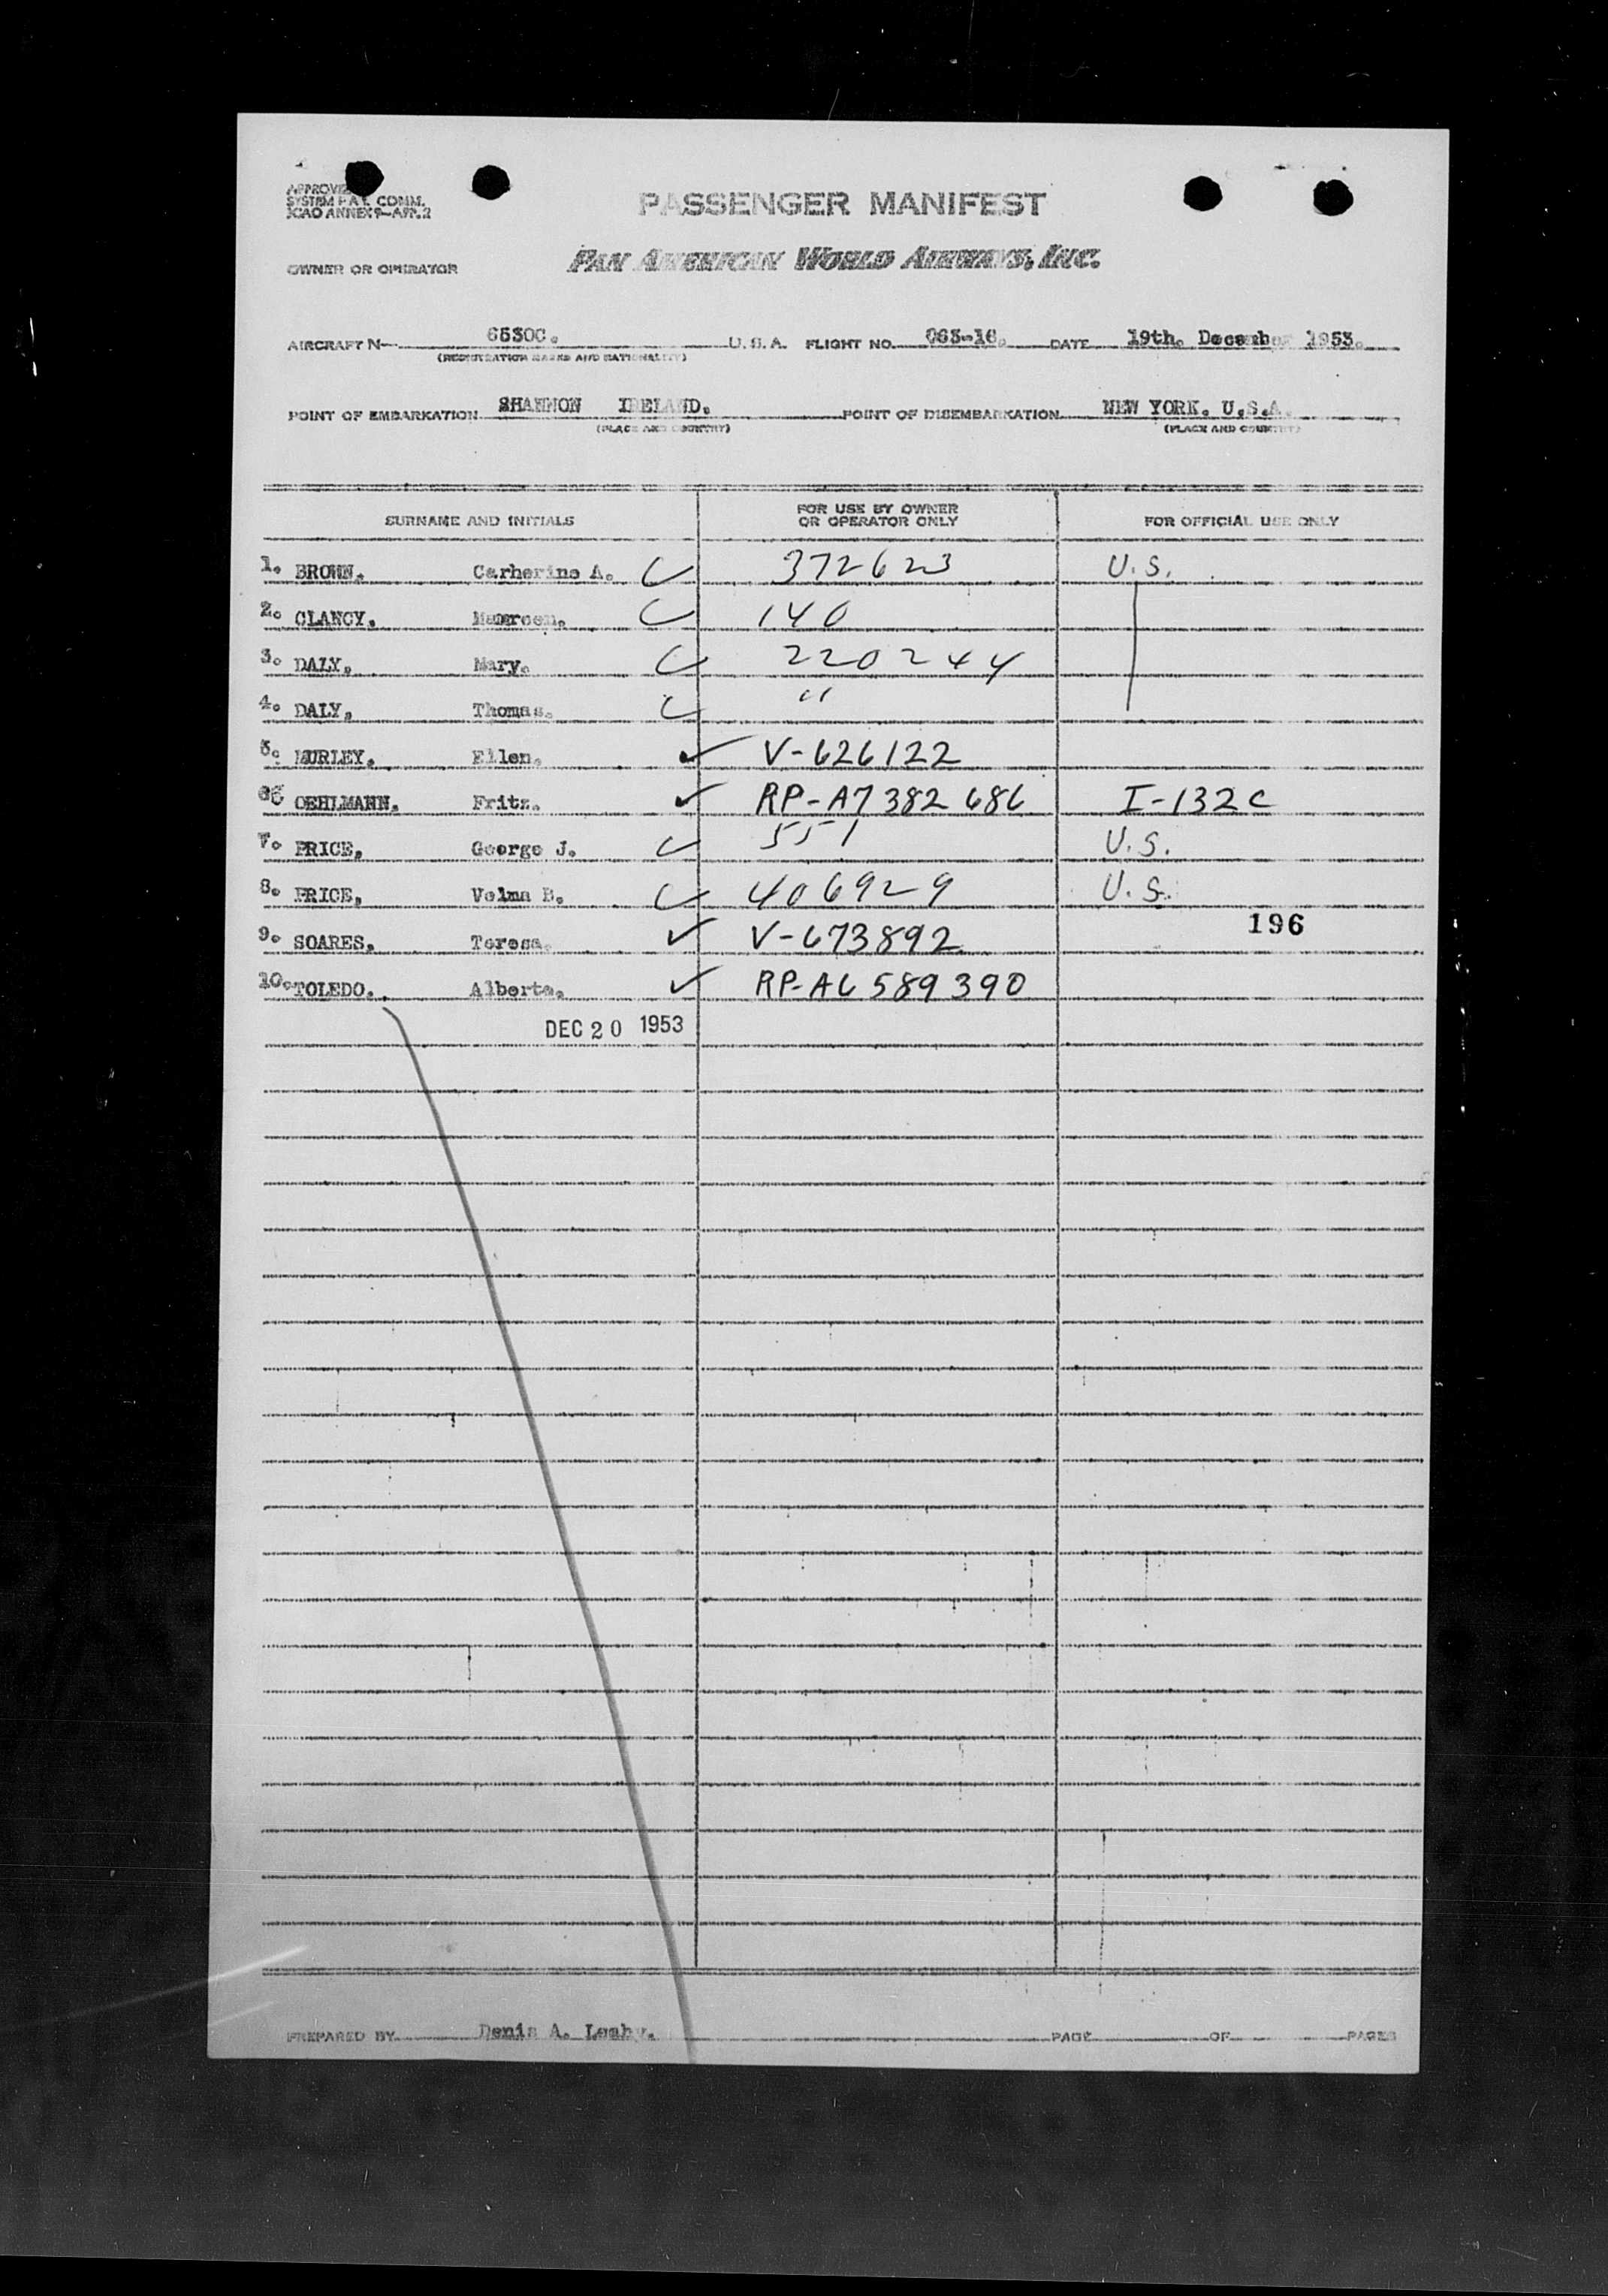 SYSTEM F.A.L. COMM.
ICAO ANNEX 9-APP. 2
PASSENGER MANIFEST
OWNER OR OPERATOR PAN AMERICAN WORLD AIRWAYS, INC.
AIRCRAFT N— 6530C. U. S. A. FLIGHT NO. 063-16. DATE 19th. December 1953.
(REGISTRATION MARKS AND NATIONALITY)
POINT OF EMBARKATION SHANNON IRELAND. POINT OF DISEMBARKATION NEW YORK. U.S.A.
(PLACE AND COUNTRY) (PLACE AND COUNTRY)
SURNAME AND INITIALS FOR USE BY OWNER OR OPERATOR ONLY FOR OFFICIAL USE ONLY
1. BROWN. Carherine A. 372623 U.S.
2. CLANCY. 140
3. DALY. Mary. 220244
4. DALY. Thomas. "
5. Ellen. V-626122
6 OEHLMANN. Fritz. RP-A7382686 I-132C
7. PRICE. George J. 551 U.S.
8. PRICE. Velma B. 406929 U.S.
196
9. SOARES. Teresa. V-673892
10. TOLEDO. RP-A6589390
DEC 20 1953
PREPARED BY Denis A. Leahy. PAGE OF PAGES